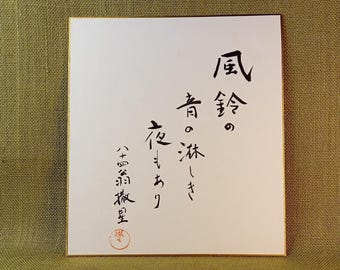 風鈴の
音の淋しき
夜もあり
八十四翁 撒星